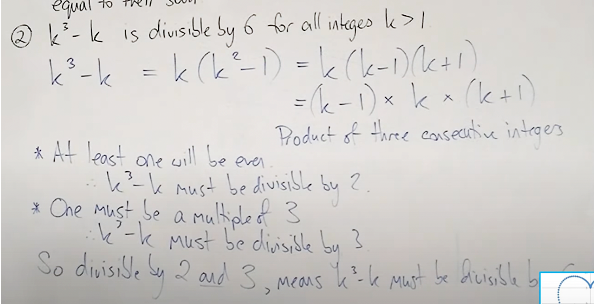 equal to their sum
② k³-k is divisible by 6 for all integes k>1
k³-k = k(k²-1) = k(k-1)(k+1)
=(k-1)× k × (k+1)
Product of three consecutive integers
* At least one will be even
∴ k³-k must be divisible by 2.
* One must be a multiple of 3
∴ k³-k must be divisible by 3
So divisible by 2 and 3, means k³-k must be divisible b